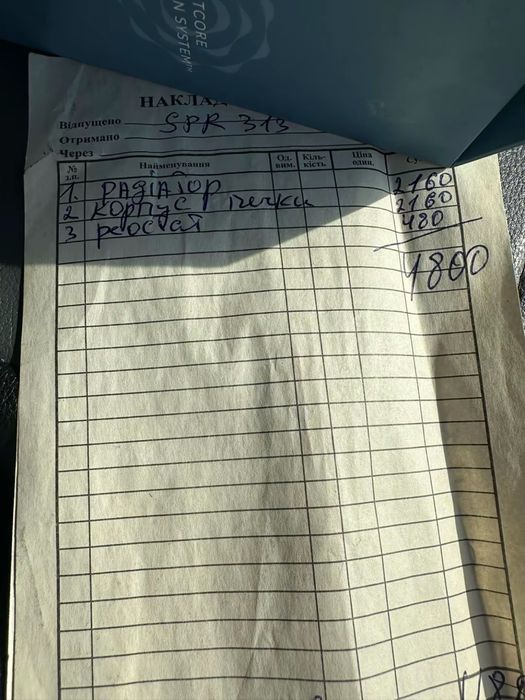 TCORE
N SYSTEM™
НАКЛАД
Відпущено SPR 313
Отримано
Через
№ з.п. Найменування Од. вим. Кіль-кість Ціна один. Су
1. РАДІАТОР 2160
2 корпус пічки 2160
3 реостат 480
4800